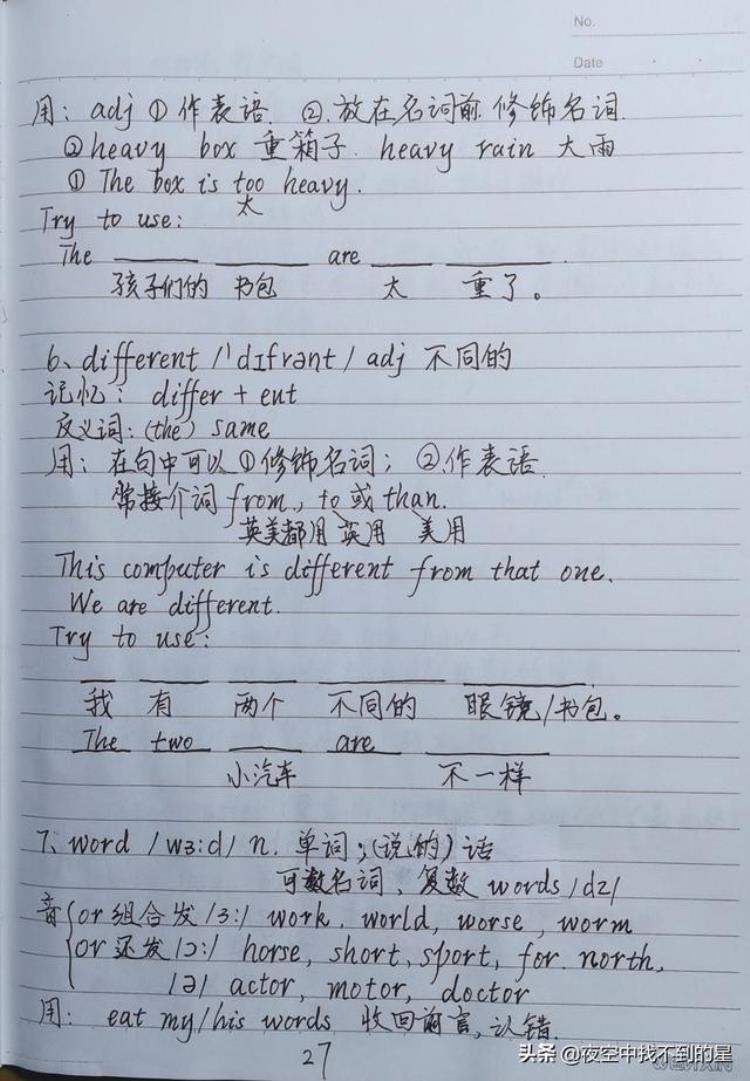 No.
Date
用: adj ①作表语. ②.放在名词前 修饰名词.
②heavy box 重箱子. heavy rain 大雨
① The box is too heavy.
太
Try to use:
The ____ ____ are ____ ____.
孩子们的 书包 太 重了。
6、different /'dɪfrənt/ adj 不同的
记忆: differ + ent
反义词: (the) same
用: 在句中可以①修饰名词; ②.作表语.
常接介词 from, to 或 than.
英美都用 英用 美用
This computer is different from that one.
We are different.
Try to use:
____ ____ ____ ____ ____.
我 有 两个 不同的 眼镜/书包。
The two ____ are ____
小汽车 不一样
7、word /wɜ:d/ n. 单词;(说的)话
可数名词、复数 words /dz/
音 or组合发/ɜ:/ work, world, worse, worm
or还发/ɔ:/ horse, short, sport, for. north,
/ə/ actor, motor, doctor
用: eat my/his words 收回前言,认错.
27
头条 @夜空中找不到的星